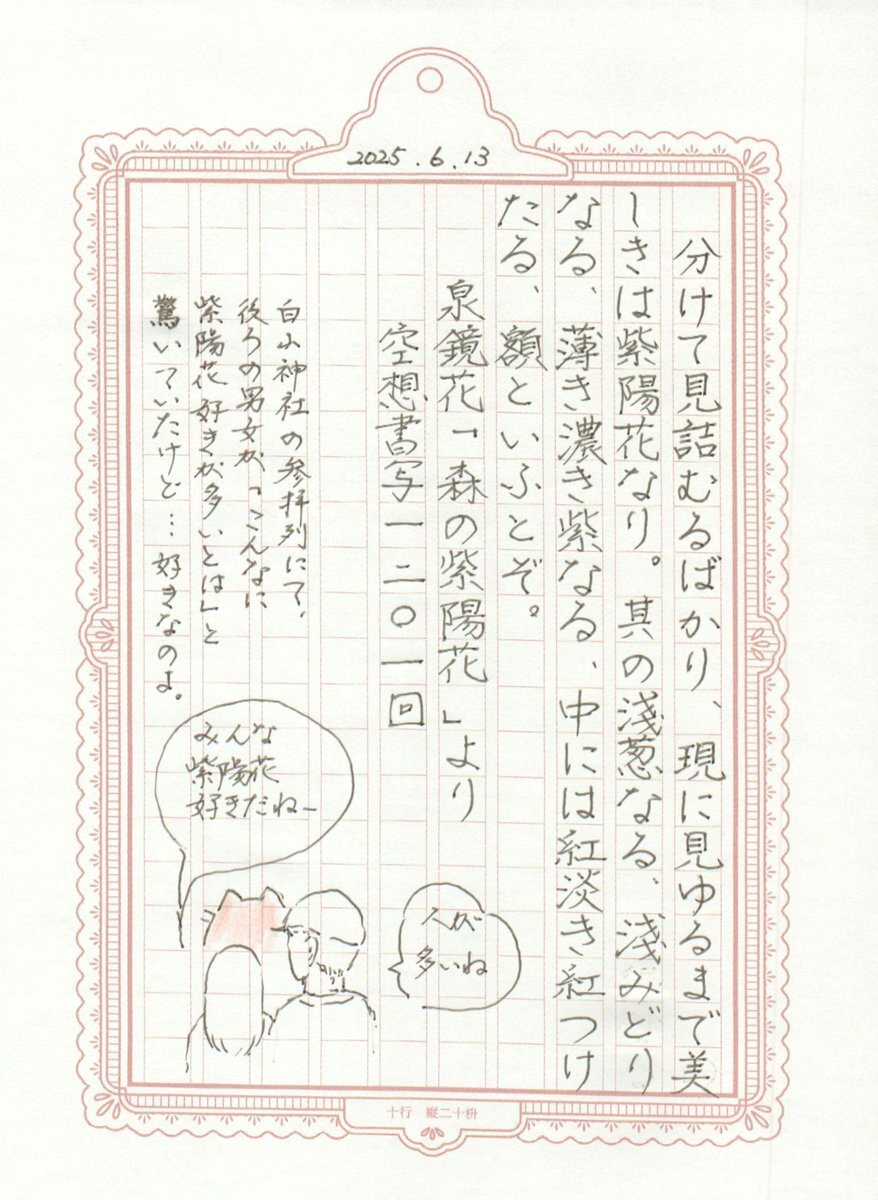 2025.6.13
分けて見詰むるばかり、現に見ゆるまで美
しきは紫陽花なり。其の浅葱なる、浅みどり
なる、薄き濃き紫なる、中には紅淡き紅つけ
たる、額といふとぞ。
泉鏡花「森の紫陽花」より
空想書写一二〇一回
白山神社の参拝列にて、
後ろの男女が「こんなに
紫陽花好きが多いとは」と
驚いていたけど…好きなのよ。
みんな
紫陽花
好きだねー
人が
多いね
十行 縦二十枡